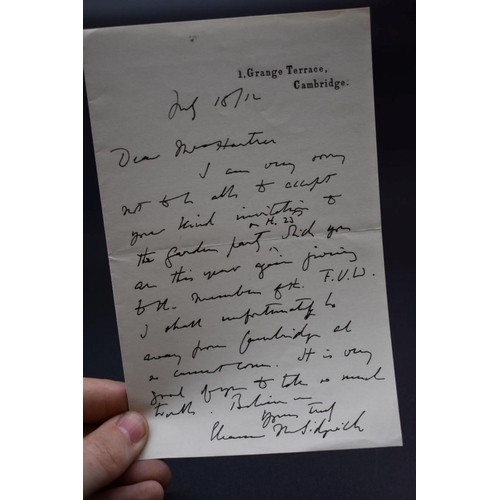 1, Grange Terrace,
Cambridge.
July 18/12
Dear Mrs
I am very sorry
not to be able to accept
your kind invitation to
on the 23
the garden party which you
are this year again giving
to the members of the F.U.W.
I shall unfortunately be
away from Cambridge and
so cannot come. It is very
good of you to take so much
trouble. Believe me
Yours truly
Eleanor M Sidgwick